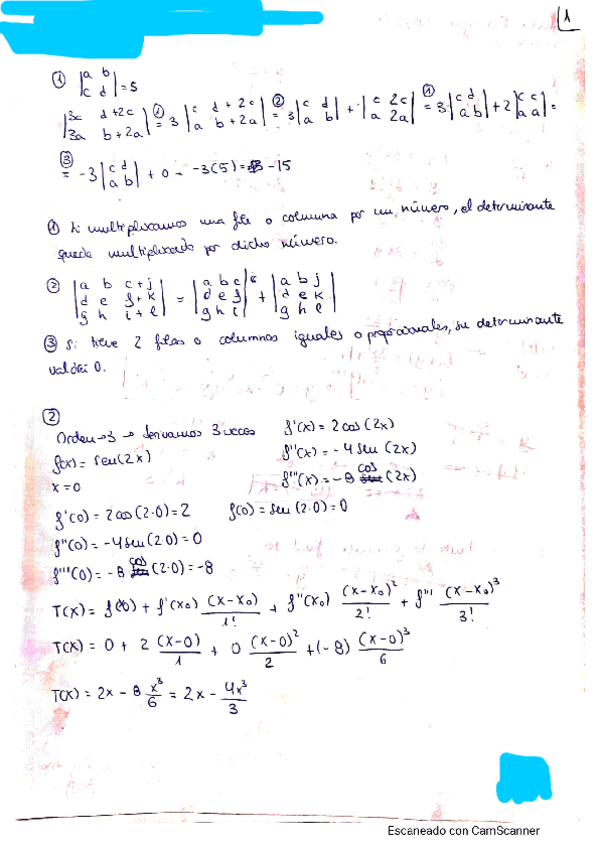 1
① |a b; c d| = 5
|3c d+2c; 3a b+2a| ①= 3 |c d+2c; a b+2a| ②= 3 |c d; a b| + |c 2c; a 2a| ①= 3 |c d; a b| + 2 |c c; a a| =
③= -3 |c d; a b| + 0 - -3(5) = -15
① Si multiplicamos una fila o columna por un número, el determinante
queda multiplicado por dicho número.
② |a b c+j; d e f+k; g h i+l| = |a b c; d e f; g h i| + |a b j; d e k; g h l|
③ Si tiene 2 filas o columnas iguales o proporcionales, su determinante
valdrá 0.
②
Orden→3 → derivamos 3 veces f'(x) = 2cos(2x)
f(x) = sen(2x) f''(x) = -4sen(2x)
x=0 f'''(x) = -8 cos (2x)
f'(0) = 2cos(2·0) = 2 f(0) = sen(2·0) = 0
f''(0) = -4sen(2·0) = 0
f'''(0) = -8 cos (2·0) = -8
T(x) = f(x0) + f'(x0) (x-x0)/1! + f''(x0) (x-x0)²/2! + f''' (x-x0)³/3!
T(x) = 0 + 2 (x-0)/1 + 0 (x-0)²/2 + (-8) (x-0)³/6
T(x) = 2x - 8 x³/6 = 2x - 4x³/3
Escaneado con CamScanner